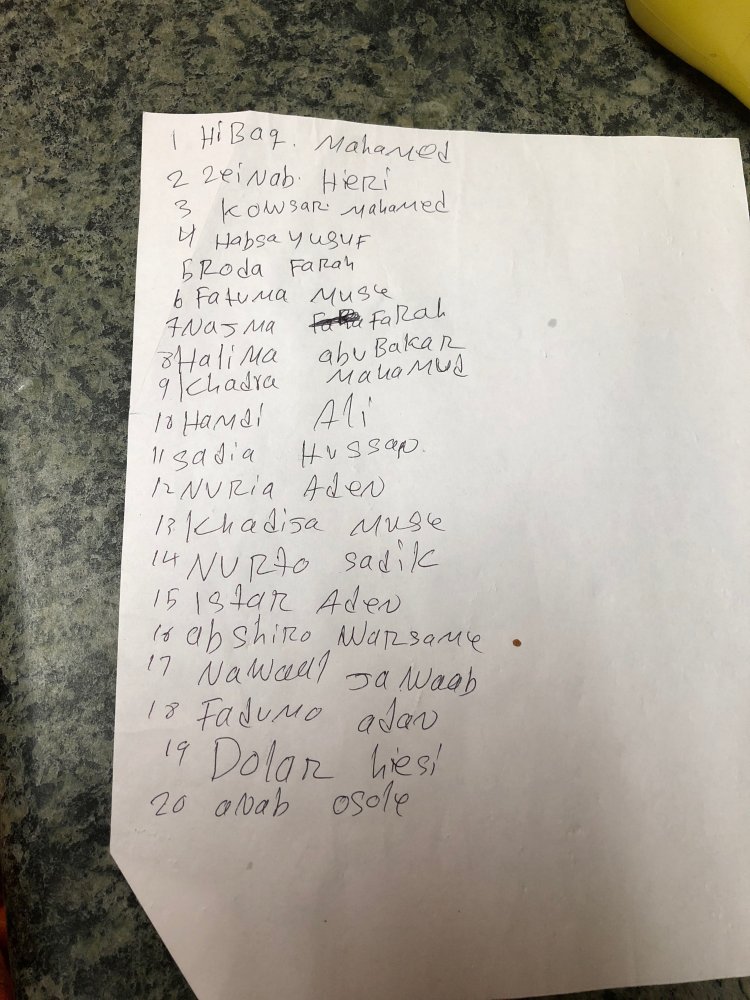 1 HiBaq. Mahamed
2 Zeinab. Hieri
3 Kowsar Mahamed
4 Habsa Yusuf
5 Roda Farah
6 Fatuma Muse
7 Najma Farah
8 Halima abuBakar
9 Khadra Mahamud
10 Hamdi Ali
11 Sadia Hussan.
12 Nuria Aden
13 Khadija Muse
14 Nurto Sadik
15 Istar Aden
16 abshiro Warsame
17 Nawaal Jawaab
18 Fadumo adan
19 Dolar hiesi
20 anab osole